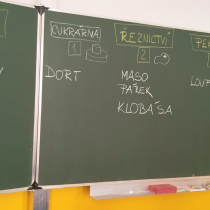 CUKRÁRNA
1
DORT
ŘEZNICTVÍ
2
MASO
PÁREK
KLOBÁSA